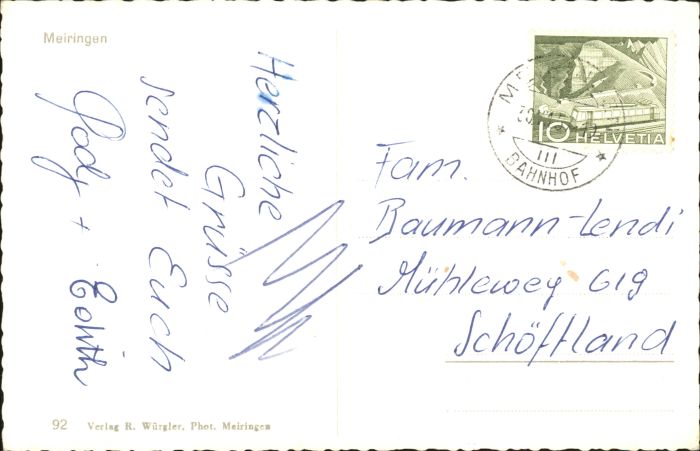 Meiringen
Herzliche
Grüsse
sendet Euch
+ Edith
10 HELVETIA
III
BAHNHOF
Fam.
Baumann-Lendi
Mühleweg 619
Schöftland
92 Verlag R. Würgler, Phot. Meiringen